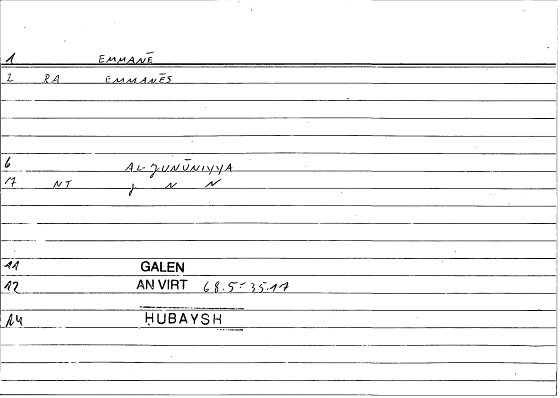 1 EMMANĒ
2 RA EMMANĒS
6 AL-JUNŪNIYYA
17 NT J N N
11 GALEN
12 AN VIRT 68.5 = 35.17
14 ḤUBAYSH